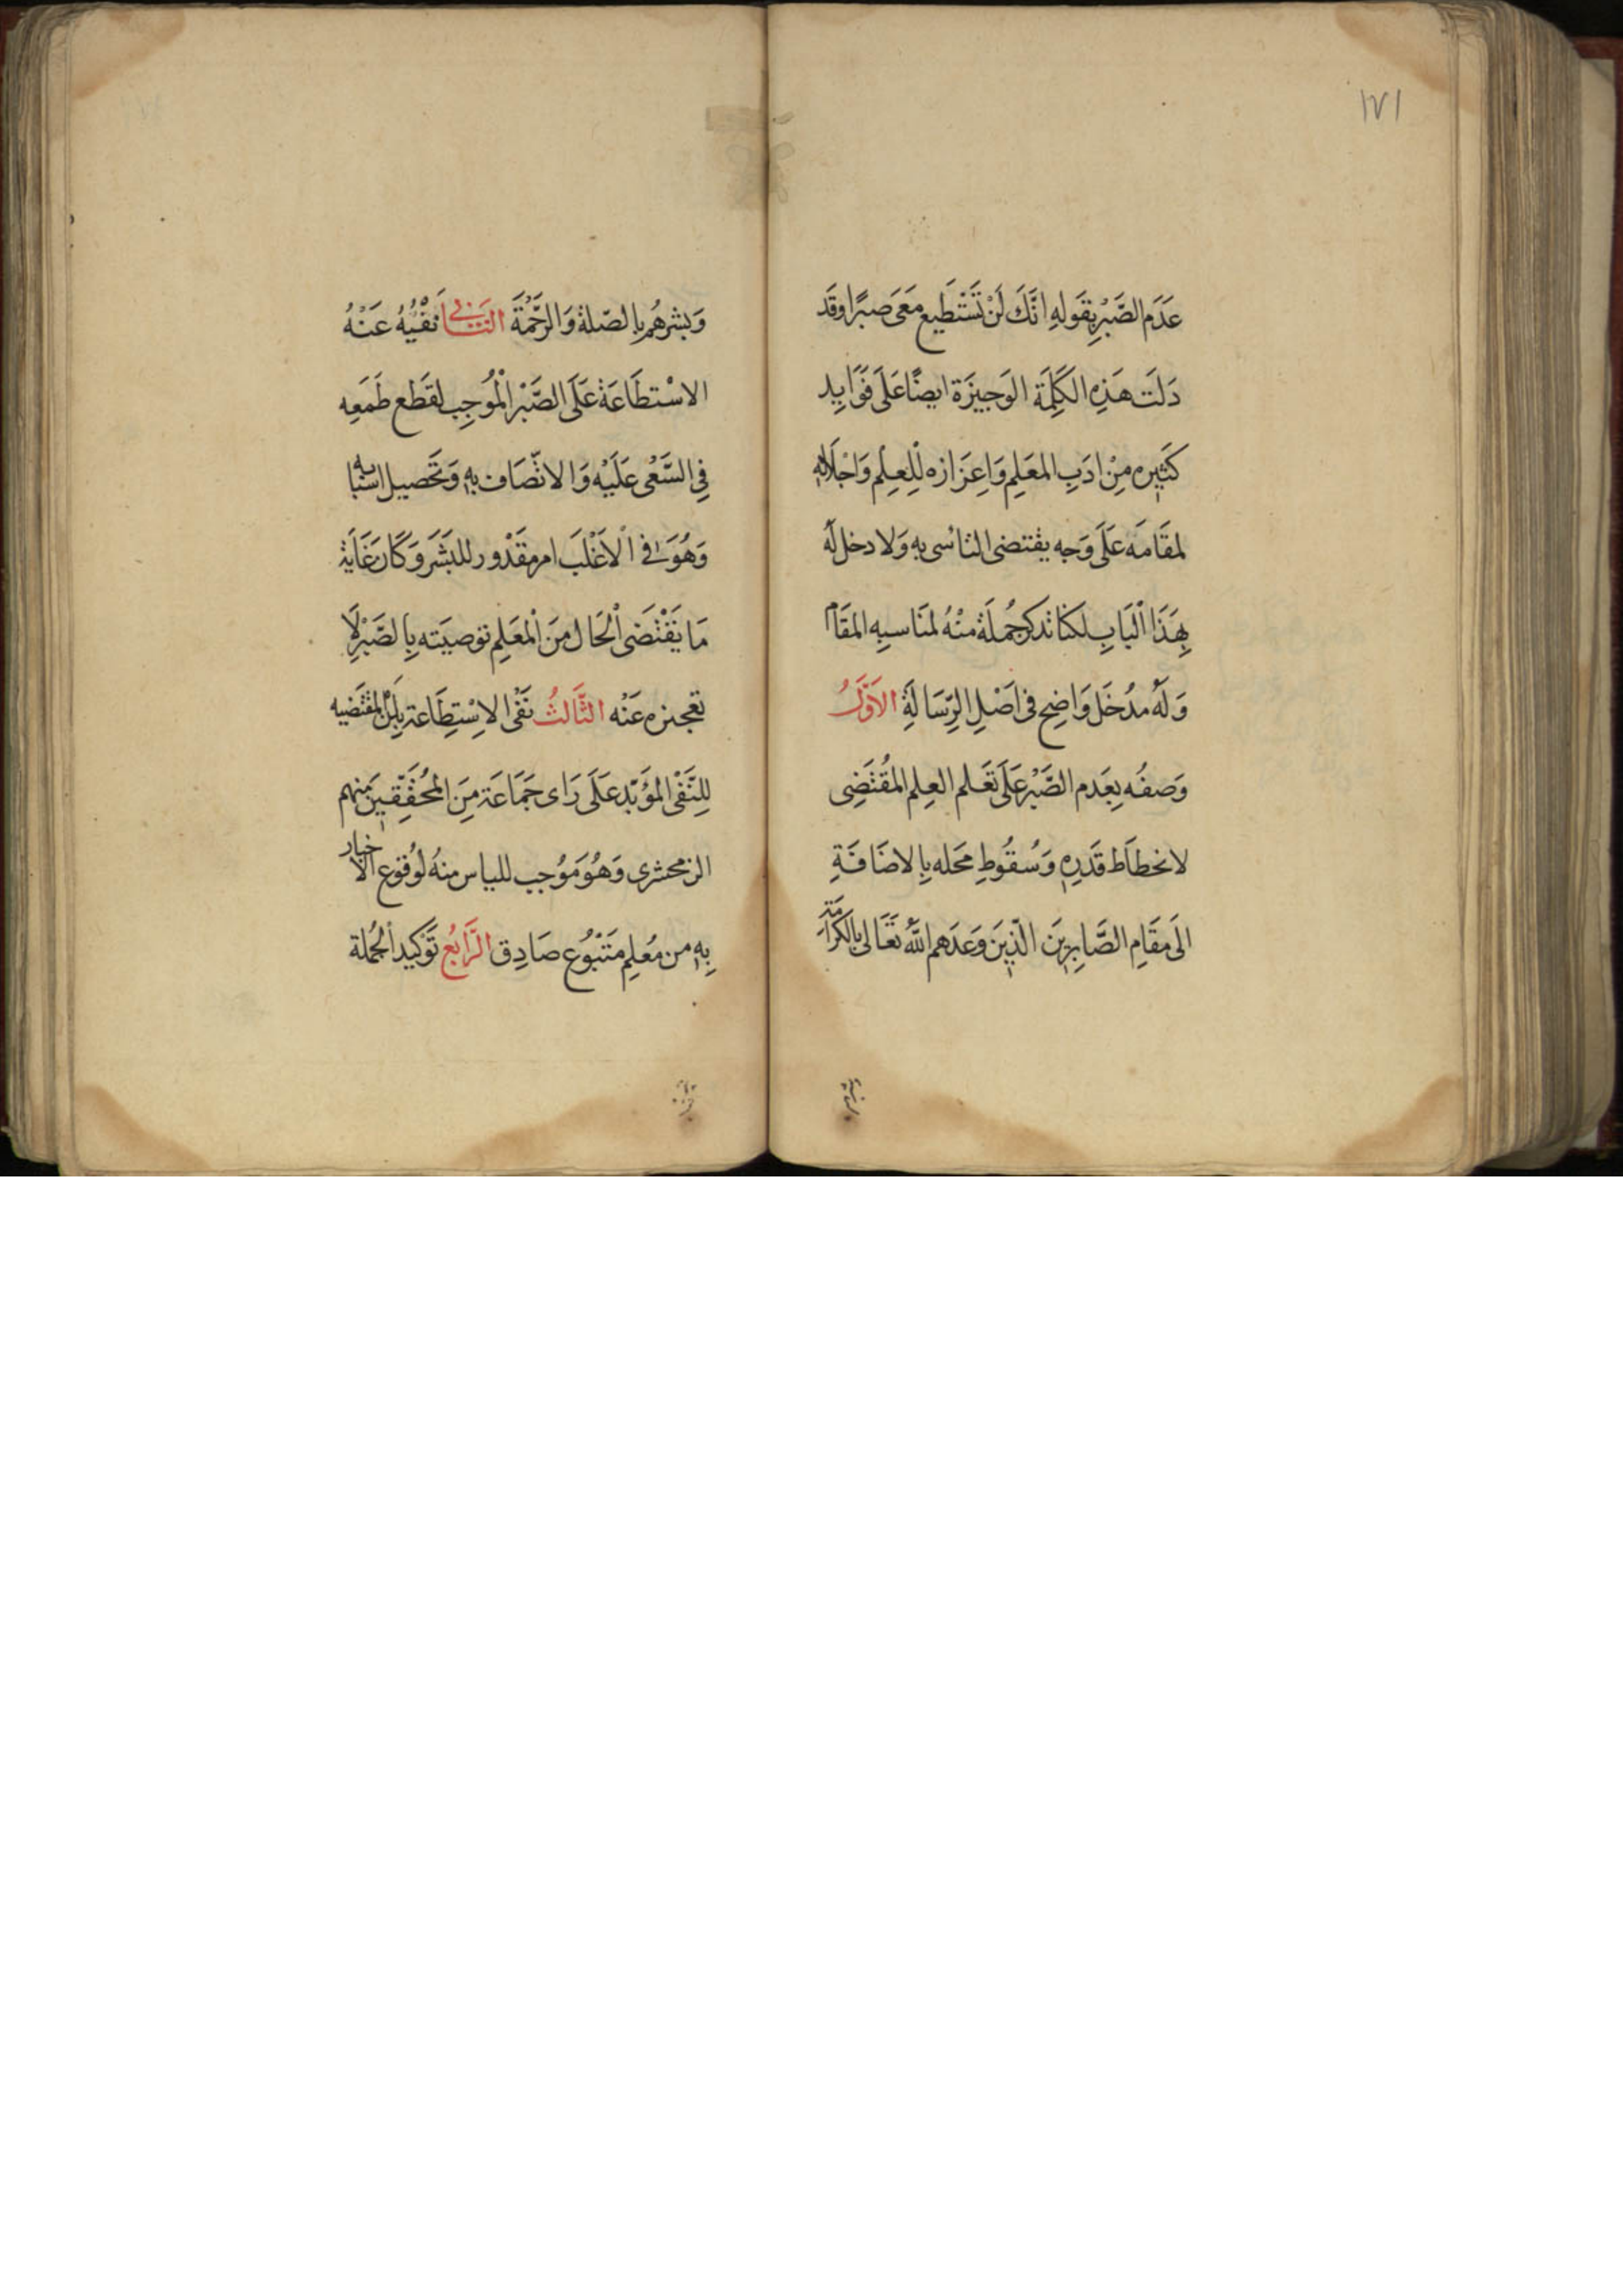 ١٧١
عَدَم الصَّبْرِ بقَولهِ انَّكَ لَنْ تَسْتَطِيع مَعىَ صَبرًا وقَد
دَلَت هَذِهِ الكَلِمَة الوَجيزَة ايضًا عَلَى فَوَايد
كَثيره مِنْ ادَبِ المعَلِم وَاِعزَازه لِلْعِلم وَاجْلَالِهِ
لمقَامَه عَلَى وَجه يقتضى التائسى بهِ وَلا دخل لَه
بِهَذَا الْبَابِ لكنا نذكر جُملَة منْهُ لمنَاسبه المقَام
وَلَهُ مدُخَل وَاضِح فى اصَْلِ الِرّسَالَةِ الاَوَّلُ
وَصفُه بِعَدم الصَّبْر عَلَى تَعَلم العِلم المقُتَضِى
لانحطَاط قَدَرِهِ وَسُقُوطِ محَله بِالاضَافَةِ
الىَ مقَامِ الصَّابِرِينَ الّذِينَ وَعَدَهم اللّهُ تَعَالى بِالكَرَامَةِ
وَبشرهُم بالصّلة وَالرَّحْمَةَ الثَّانِى نَفْيُهُ عَنْهُ
الاسْتطَاعَة عَلَى الصَّبْر الْمُوَجِب لقَطع طَمَعِه
فِى السَّعْى عَلَيْه وَالاتّصَاف بِهِ وَتَحَصيل اسْبَابه
وَهُوَ فى الْاَغْلَبَ امر مقَدُْور للبَشَر وَكَان غَايَة
مَا يَقْتَضَى الْحَال مِنَ الْمعَلِم توصيَته بِالصَّبْرِ لَا
تعجيزه عَنْه الثَّالثُ نَفْى الاسِْتِطَاعة بِلَن المقتَضيه
لِلنَّفْى المؤَبّد عَلَى رَاى جَمَاعَة مِنَ المُحَقِّقِينَ منهم
الزمحشرى وَهُوَ مَوُجب للياس منهُ لوُقوع الاخبار
بِهِ من مُعلِم مَتَبْوُع صَادِق الرَّابُع تَوَكيد الْجُملة
وبشرهم